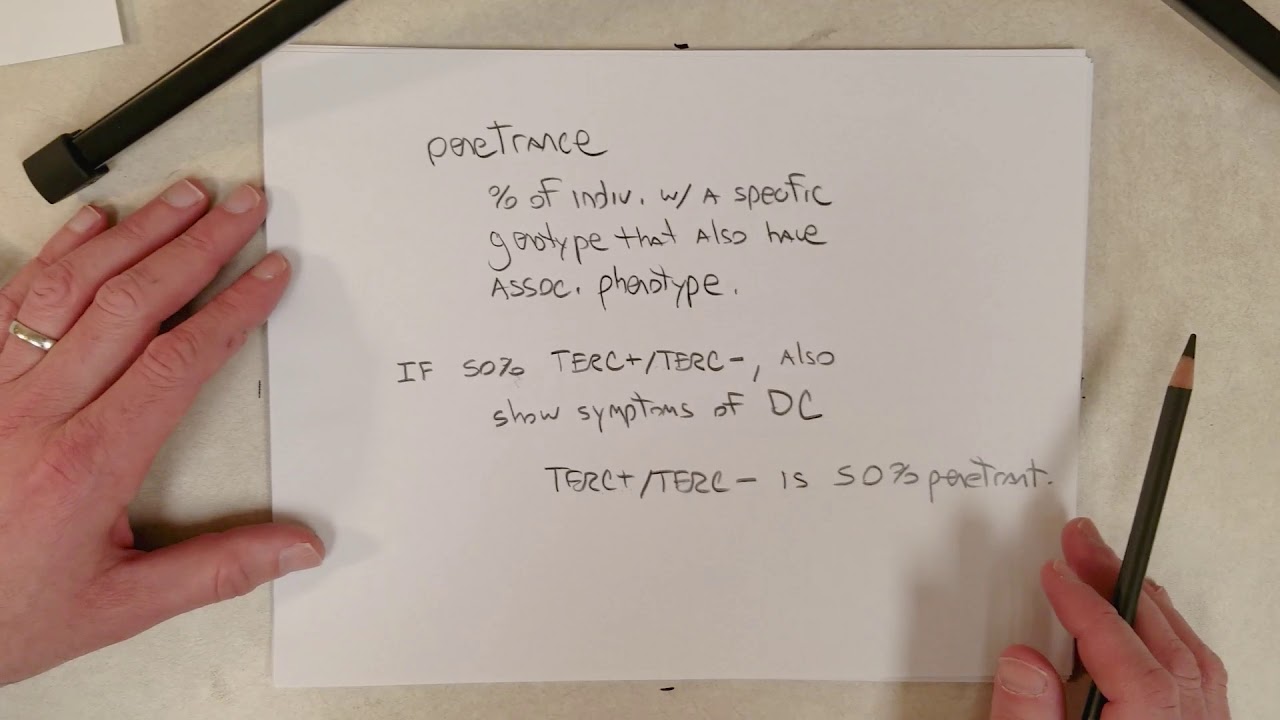 penetrance
% of indiv. w/ a specific
genotype that also have
assoc. phenotype.
If 50% TERC+/TERC-, also
show symptoms of DC
TERC+/TERC- is 50% penetrant.